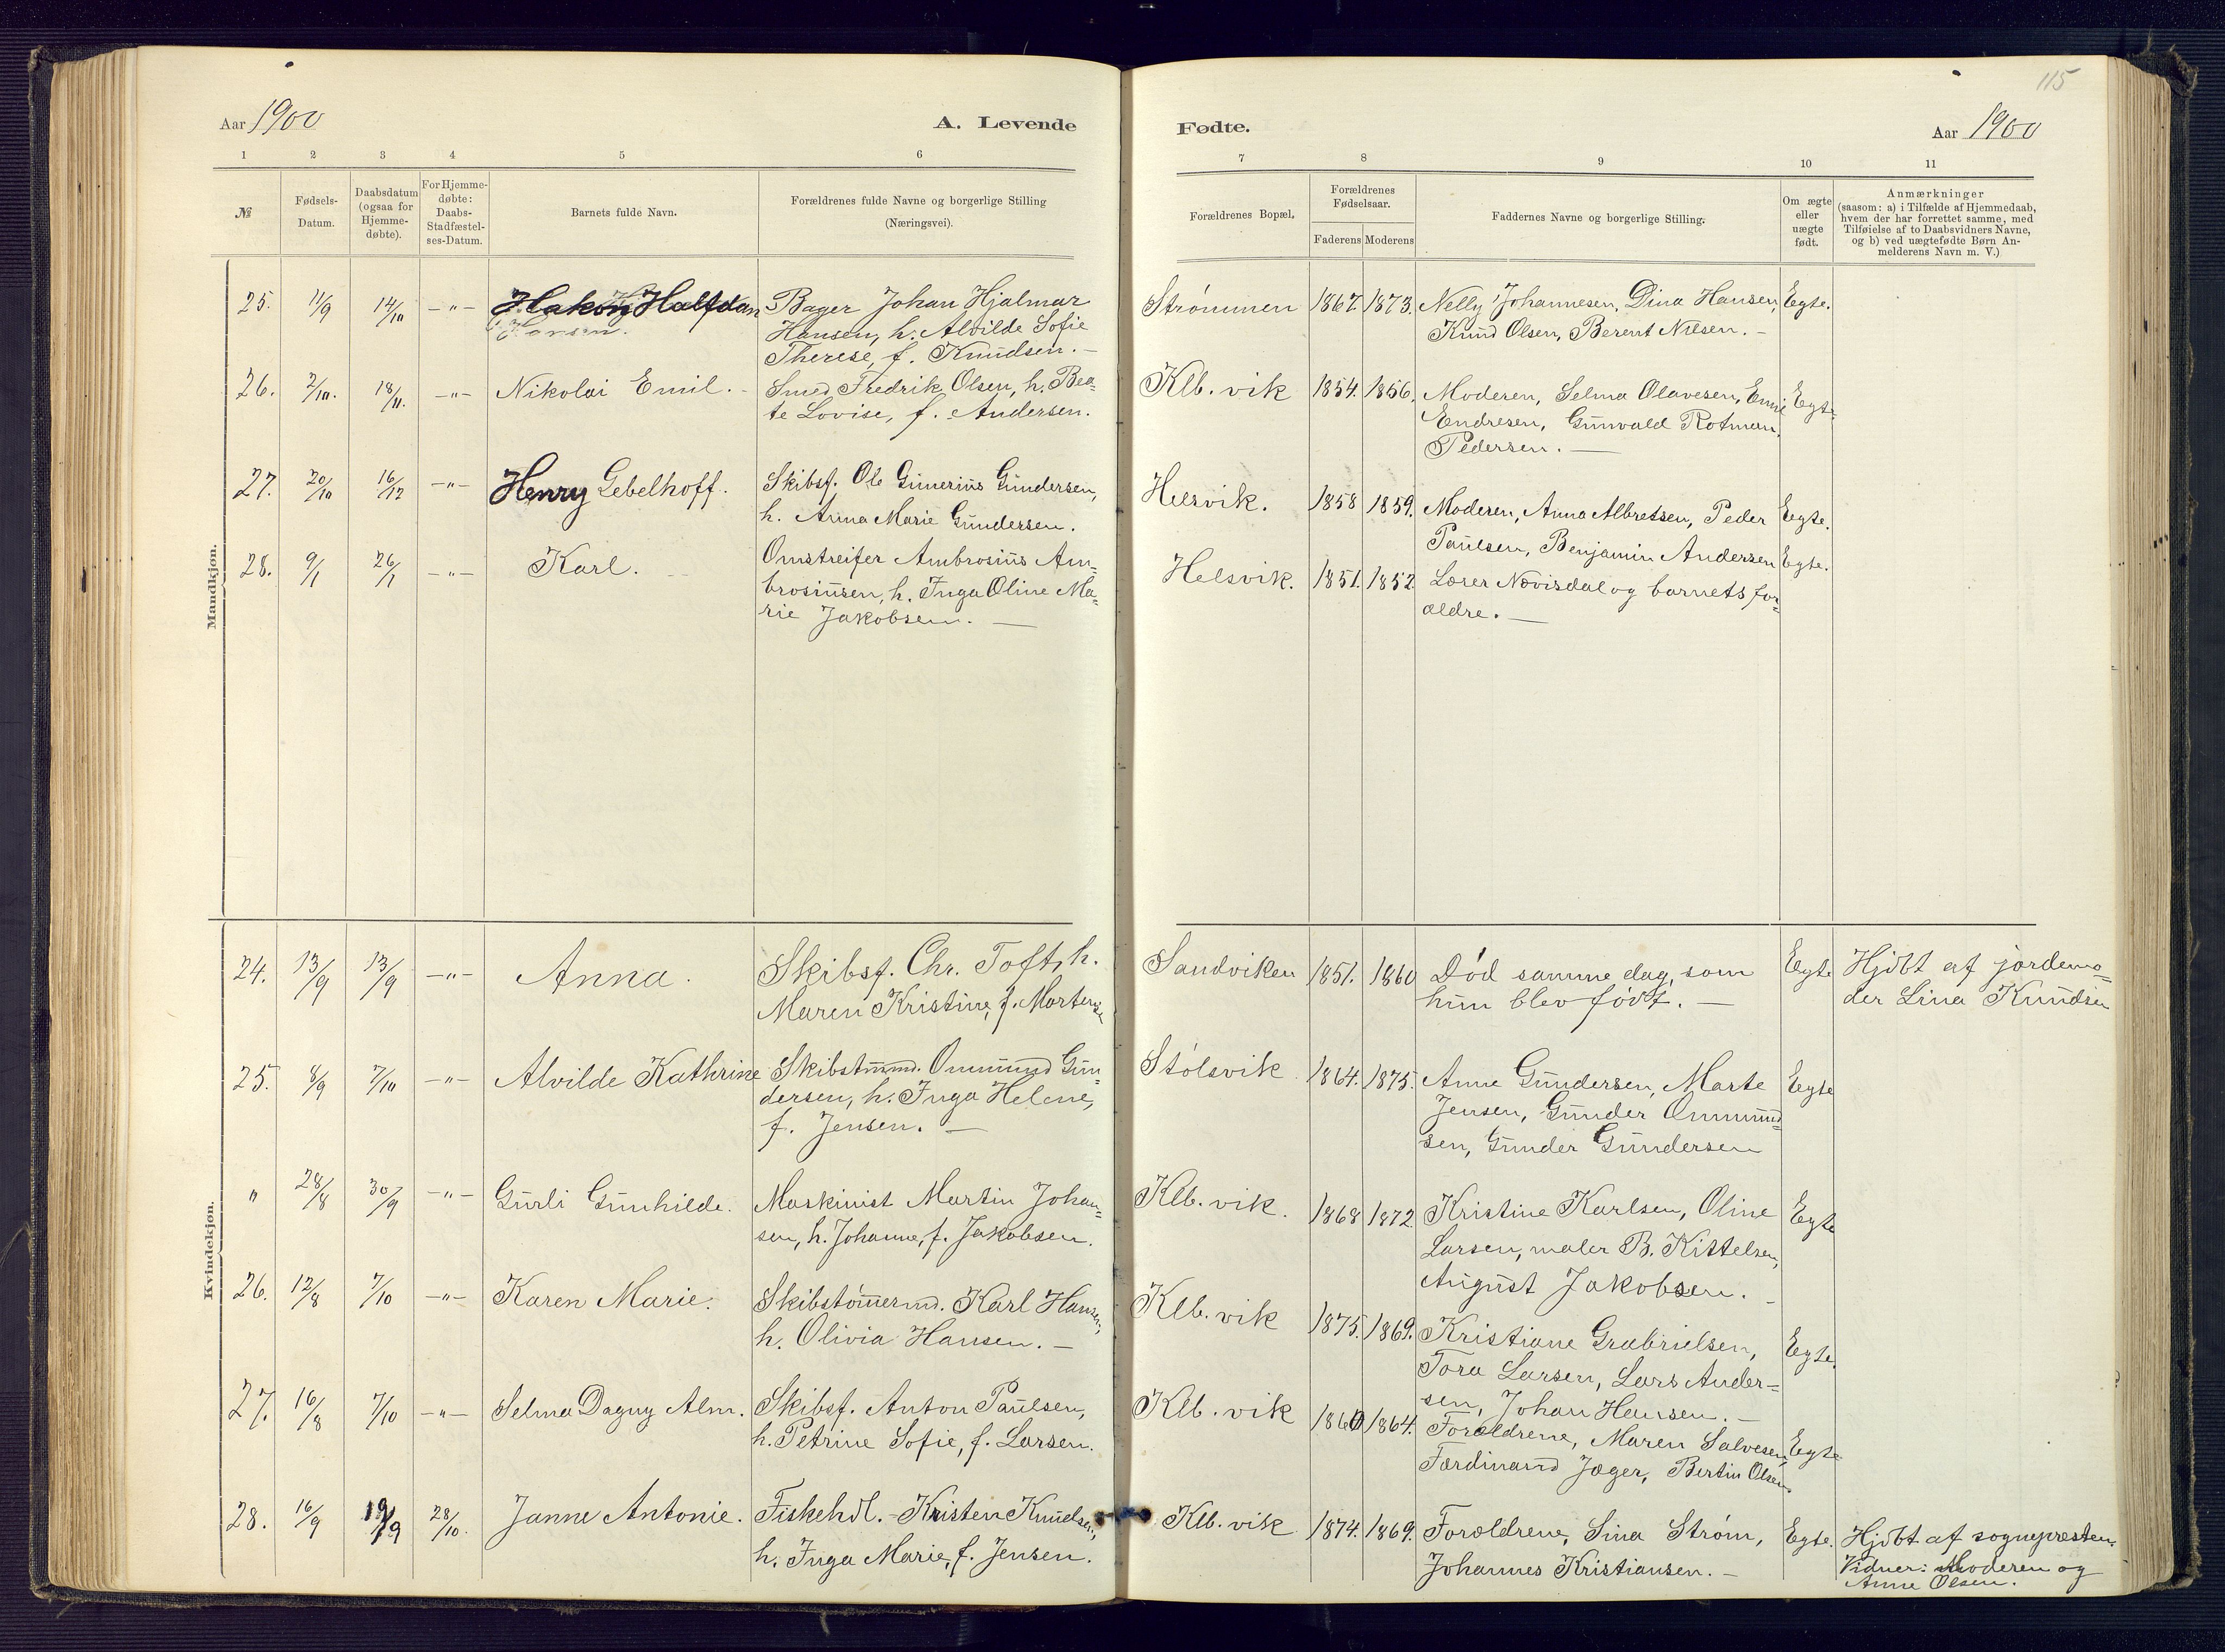 115
Aar 1900
A. Levende
Fødte.
Aar 1900
1 2 3 4 5 6 7 8 9 10 11
№
Fødsels-
Datum.
Daabsdatum
(ogsaa for
Hjemme-
døbte).
For Hjemme-
døbte:
Daabs-
Stadfæstel-
ses-Datum.
Barnets fulde Navn.
Forældrenes fulde Navne og borgerlige Stilling
(Næringsvei).
Forældrenes Bopæl.
Forældrenes
Fødselsaar.
Faderens Moderens
Faddernes Navne og borgerlige Stilling.
Om ægte
eller
uægte
født.
Anmærkninger
(saasom: a) i Tilfælde af Hjemmedaab,
hvem der har forrettet samme, med
Tilføielse af to Daabsvidners Navne,
og b) ved uægtefødte Børn An-
melderens Navn m. V.)
Mandkjøn.
25. 11/9 14/10 -„- Hakon Halfdan
Hansen.
Bager Johan Hjalmar
Hansen, h. Alvilde Sofie
Therese, f. Knudsen. -
Strømmen 1867. 1873. Nelly Johannesen, Dina Hansen, Egte.
Knud Olsen, Berent Nilsen. -
26. 7/10. 18/11. -„- Nikolai Emil. -
Smed Fredrik Olsen, h. Bea-
te Lovise, f. Andersen.
Klb. vik 1854. 1856. Moderen, Selma Olavesen, Emie Egte.
Endresen, Gunvald Rotman,
Pedersen. -
27. 20/10 16/12 -„- Henry Gebelhoff.
Skibsf. Ole Gunerius Gundersen,
h. Anna Marie Gundersen.
Helsvik. 1858 1859. Moderen, Anna Albretsen, Peder Egte.
Paulsen, Benjamin Andersen
28. 9/1 26/1 -„- Karl.
Omstreifer Ambrosius Am-
brosiusen, h. Inga Oline Ma-
rie Jakobsen. -
Helsvik. 1851. 1852 Læser Nævisdal og barnets for- Egte.
ældre. -
Kvindekjøn.
24. 13/9 13/9 -„- Anna.
Skibsf. Chr. Toft, h.
Maren Kristine, f. Mortensen
Sandviken 1851. 1860 Død samme dag, som Egte
hun blev født. -
Hjdbt af jordemo-
der Lina Knudsen
25. 8/9 7/10 -„- Alvilde Kathrine
Skibstmmd. Ommund Gun-
dersen, h. Inga Helene,
f. Jensen. -
Stølsvik 1864. 1875. Anne Gundersen, Marte Egte
Jensen, Gunder Ommund-
sen, Gunder Gundersen
„ 28/8 30/9 -„- Gurli Gunhilde.
Maskinist Martin Johan-
sen, h. Johanne, f. Jakobsen.
Klb. vik. 1868 1872 Kristine Karlsen, Oline Egte
Larsen, maler B. Kittelsen,
August Jakobsen. -
26. 12/8 7/10 -„- Karen Marie.
Skibstømermd. Karl Hansen,
h. Olivia Hansen. -
Klb. vik 1875. 1869. Kristiane Grabrielsen, Egte.
Tora Larsen, Lars Ander-
sen, Johan Hansen. -
27. 16/8 7/10 -„- Selma Dagny Alm.
Skibsf. Anton Paulsen,
h. Petrine Sofie, f. Larsen.
Klb. vik 1860 1864. Forældrene, Maren Salvesen, Egte
Færdinand Jæger, Bertin Olsen
28. 16/9 19/9 28/10. Janne Antonie.
Fiskehdl. - Kristen Knudsen,
h. Inga Marie, f. Jensen.
Klb. vik 1874. 1869. Forældrene, Sina Strøm, Egte.
Johannes Kristiansen. -
Hjdbt af sognepresten.
Vidner: Moderen og
Anne Olsen.